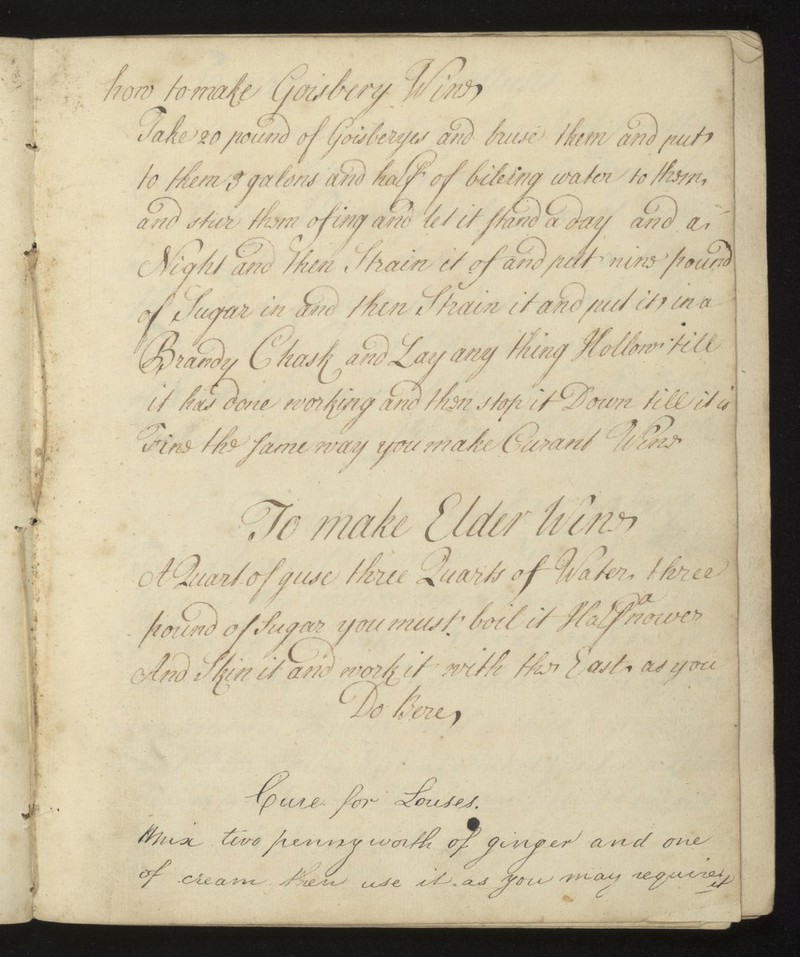 how to make Goisbery Wine
Take 20 pound of Goisberyes and bruse them and put
to them 3 galons and half of bileing water to them
and stur them ofing and let it stand a day and a
Night and then Strain it of and put nine pound
of Sugar in and then Strain it and put it in a
Brandy Chask and Lay any thing Hollow till
it has done working and then stop it Down till it is
Fine the same way you make Curant Wine
To make Elder Wine
A Quart of guse three Quarts of Water three
pound of Sugar you must boil it Half a nower
And Skin it and work it with the East as you
Do Bere
Cure for Louses.
mix two pennyworth of ginger and one
of cream then use it as you may require it